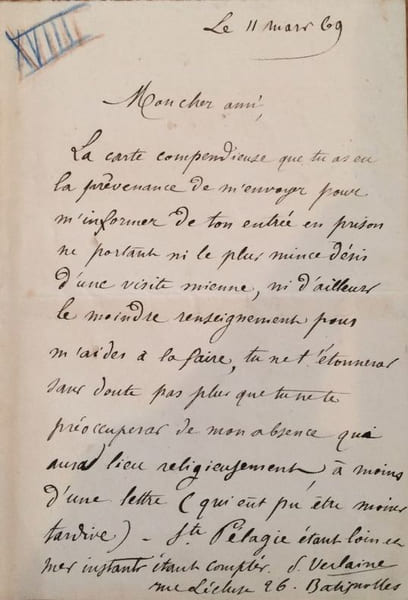 XVIII
Le 11 mars 69
Mon cher ami,
La carte compendieuse que tu as eu
la prévenance de m'envoyer pour
m'informer de ton entrée en prison
ne portant ni le plus mince désir
d'une visite mienne, ni d'ailleurs
le moindre renseignement pour
m'aider à la faire, tu ne t'étonneras
sans doute pas plus que tu ne te
préoccuperas de mon absence qui
aura lieu religieusement, à moins
d'une lettre (qui eût pu être moins
tardive) – Ste Pélagie étant loin et
mes instants étant comptés. Verlaine
rue Lécluse 26. Batignolles